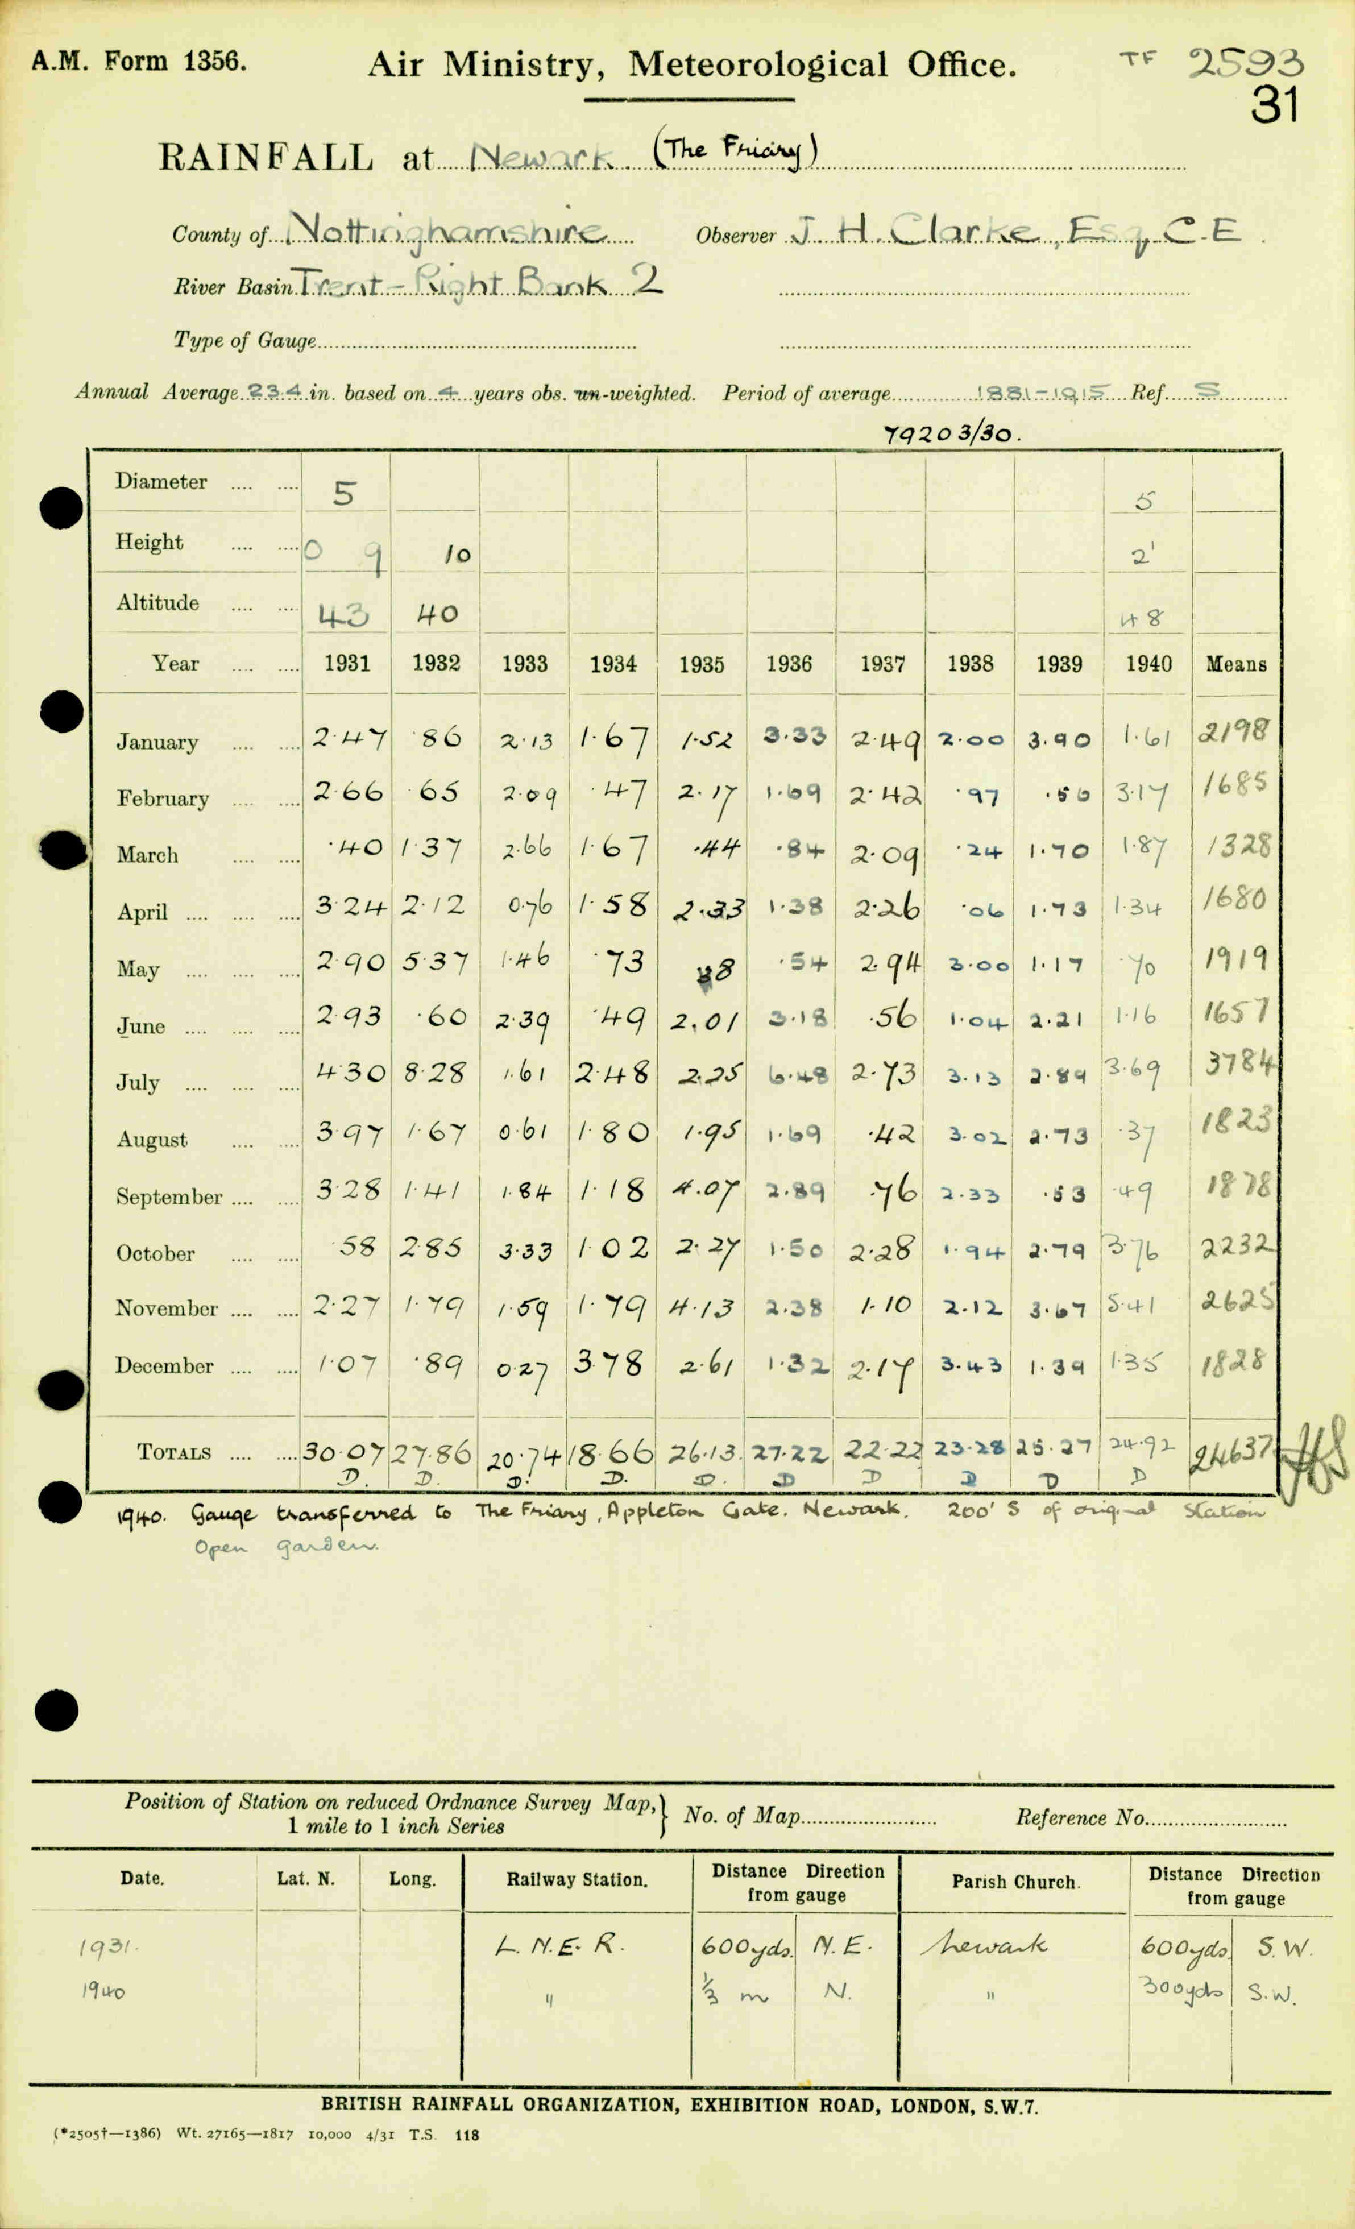 A.M. Form 1356.
Air Ministry, Meteorological Office.
TF 2593
31
RAINFALL at Newark (The Friary)
County of Nottinghamshire Observer J. H. Clarke, Esq, C.E.
River Basin Trent - Right Bank 2
Type of Gauge
Annual Average 23.4 in. based on 4 years obs. un-weighted. Period of average 1881-1915 Ref. S
79203/30.
Diameter 5 5
Height 0 9 10 2'
Altitude 43 40 48
Year 1931 1932 1933 1934 1935 1936 1937 1938 1939 1940 Means
January 2.47 .86 2.13 1.67 1.52 3.33 2.49 2.00 3.90 1.61 2198
February 2.66 .65 2.09 .47 2.17 1.69 2.42 .97 .56 3.17 1685
March .40 1.37 2.66 1.67 .44 .84 2.09 .24 1.70 1.87 1328
April 3.24 2.12 0.76 1.58 2.33 1.38 2.26 .06 1.73 1.34 1680
May 2.90 5.37 1.46 .73 .38 .54 2.94 3.00 1.17 .70 1919
June 2.93 .60 2.39 .49 2.01 3.18 .56 1.04 2.21 1.16 1657
July 4.30 8.28 1.61 2.48 2.25 6.48 2.73 3.13 2.89 3.69 3784
August 3.97 1.67 0.61 1.80 1.95 1.69 .42 3.02 2.73 .37 1823
September 3.28 1.41 1.84 1.18 4.07 2.89 .76 2.33 .53 .49 1878
October .58 2.85 3.33 1.02 2.27 1.50 2.28 1.94 2.79 3.76 2232
November 2.27 1.79 1.59 1.79 4.13 2.38 1.10 2.12 3.67 5.41 2625
December 1.07 .89 0.27 3.78 2.61 1.32 2.17 3.43 1.39 1.35 1828
TOTALS 30.07 27.86 20.74 18.66 26.13 27.22 22.22 23.28 25.27 24.92 24637
D. D. D. D. D. D D D D D
1940. Gauge transferred to The Friary, Appleton Gate. Newark. 200' S of original Station
Open garden.
Position of Station on reduced Ordnance Survey Map, } No. of Map Reference No.
1 mile to 1 inch Series
Date. Lat. N. Long. Railway Station. Distance Direction from gauge Parish Church. Distance Direction from gauge
1931. L.N.E.R. 600yds. N.E. Newark 600yds. S.W.
1940 " 1/3 m N. " 300yds S.W.
BRITISH RAINFALL ORGANIZATION, EXHIBITION ROAD, LONDON, S.W.7.
(*2505†—1386) Wt. 27165—1817 10,000 4/31 T.S. 118